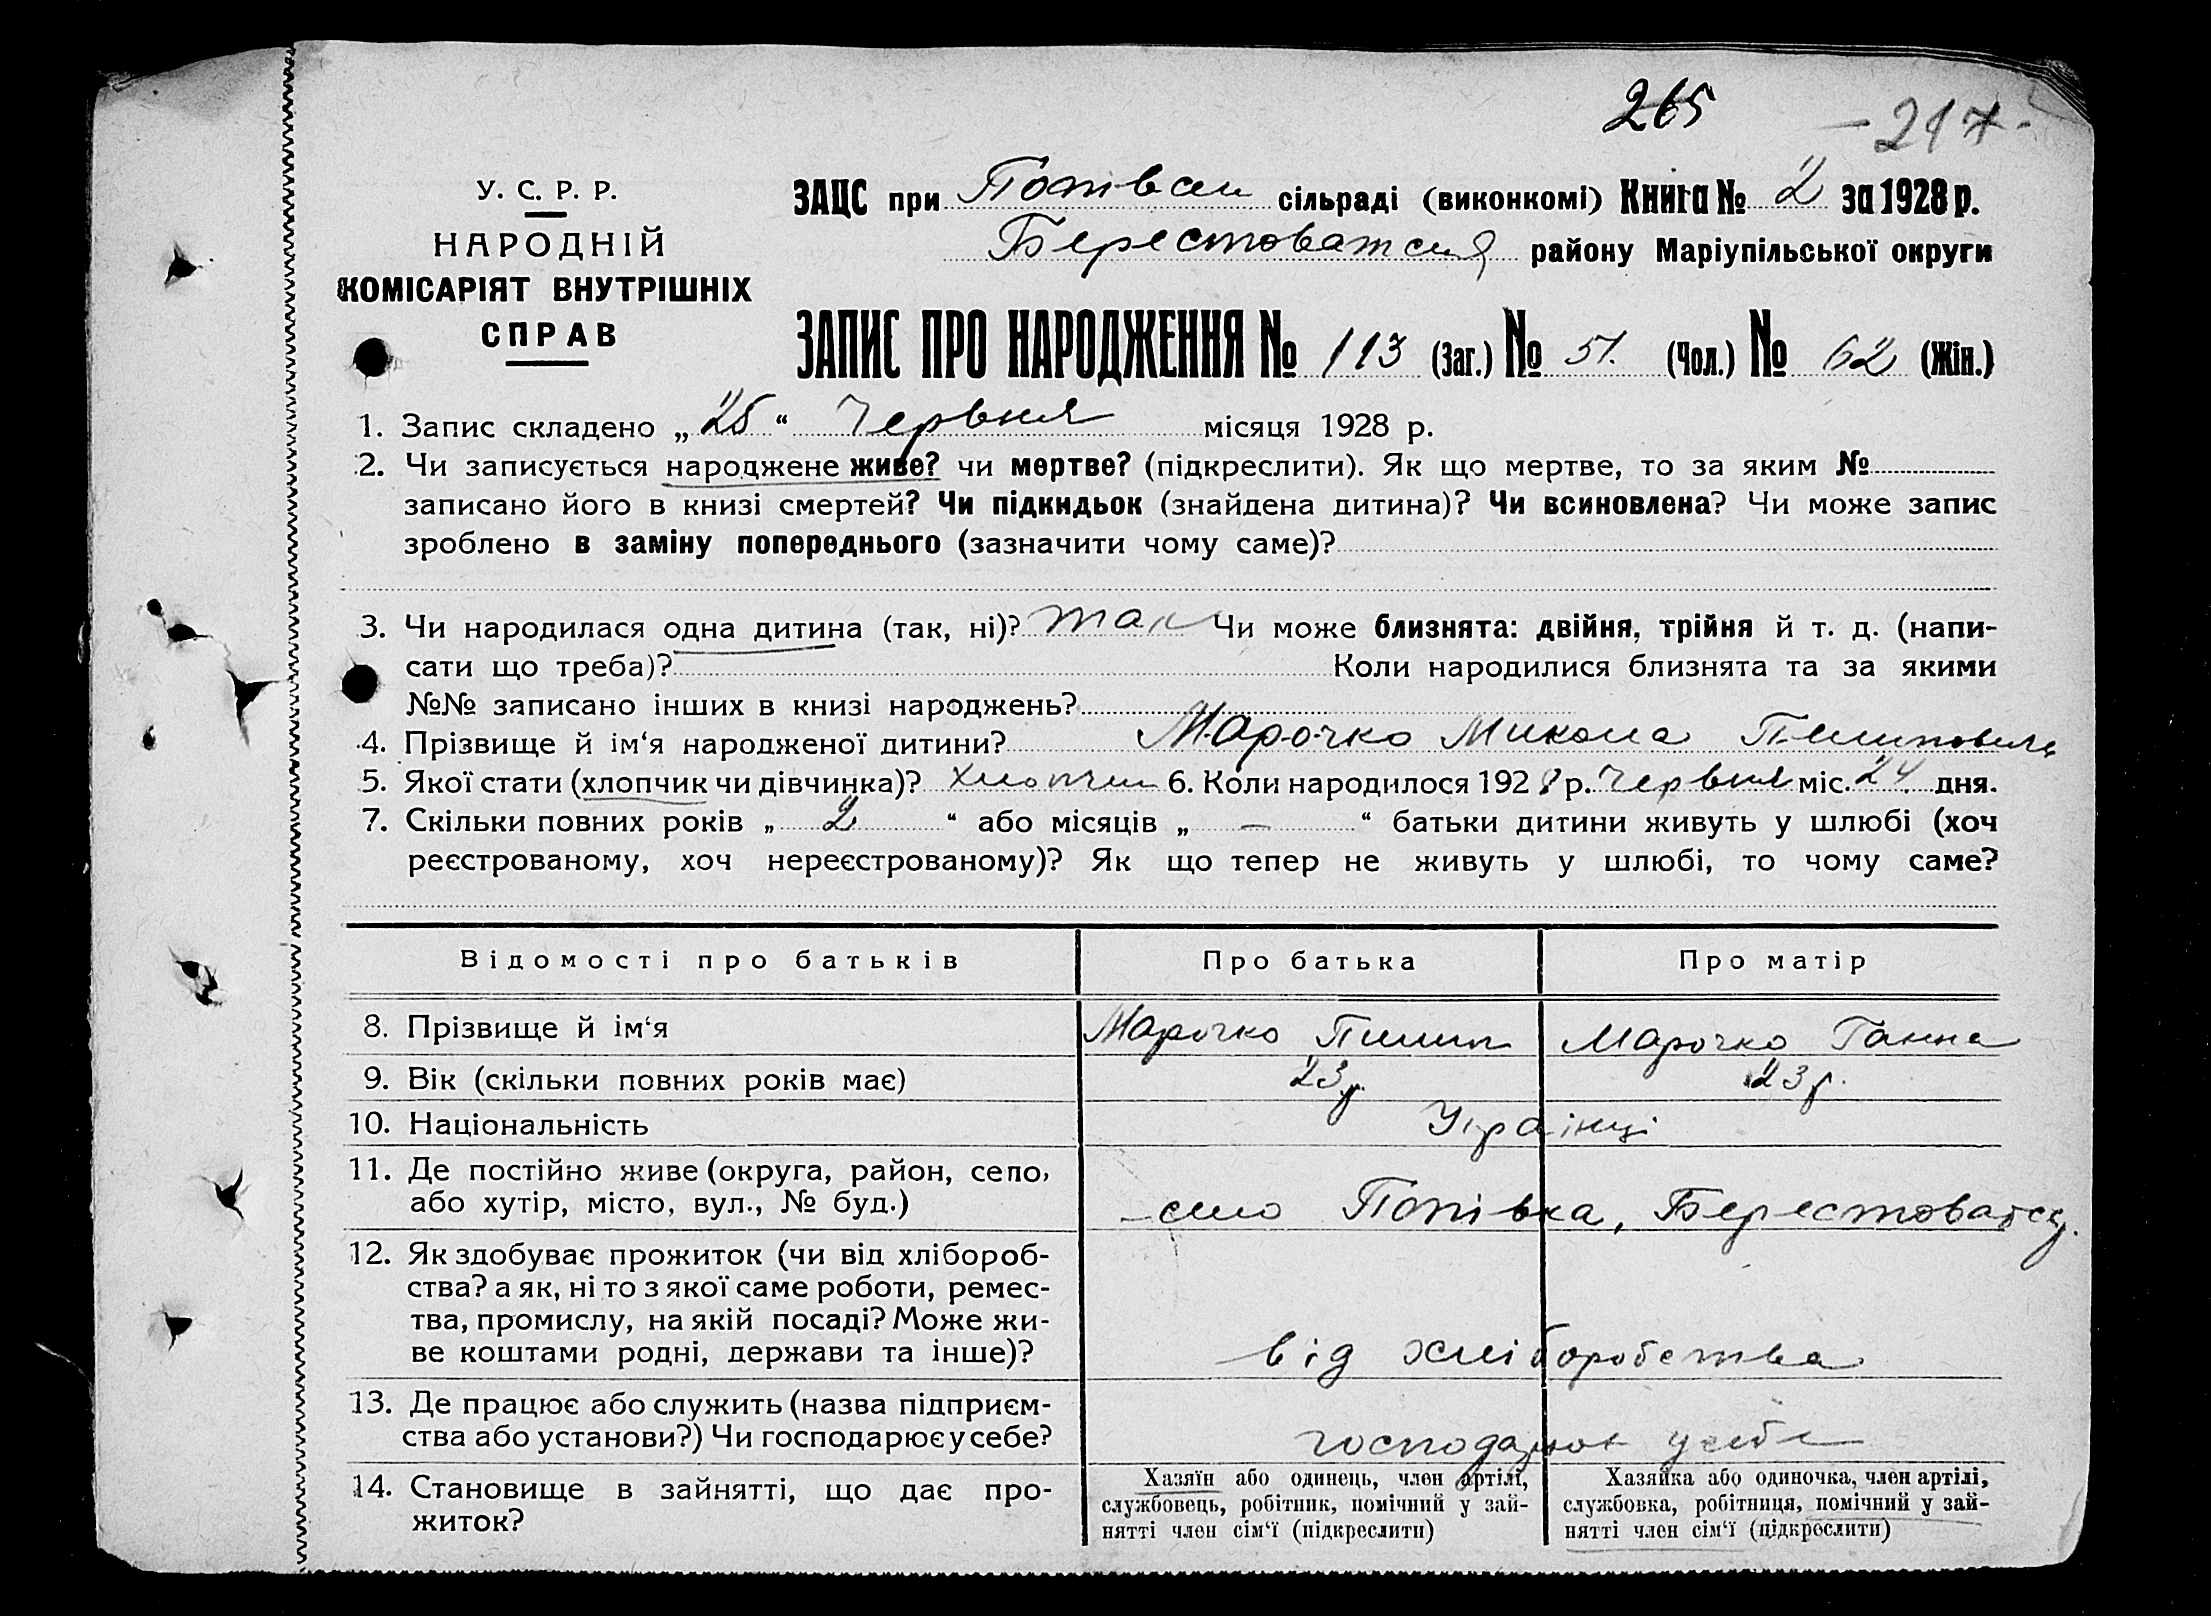 265 -217-
У. С. Р. Р.
НАРОДНІЙ
КОМІСАРІЯТ ВНУТРІШНІХ
СПРАВ
ЗАЦС при сільраді (виконкомі) Книга № 2 за 1928 р.
району Маріупільської округи
ЗАПИС ПРО НАРОДЖЕННЯ № 113 (Заг.) № 51. (Чол.) № 62 (Жін.)
1. Запис складено „25“ Червня місяця 1928 р.
2. Чи записується народжене живе? чи мертве? (підкреслити). Як що мертве, то за яким №
записано його в книзі смертей? Чи підкидьок (знайдена дитина)? Чи всиновлена? Чи може запис
зроблено в заміну попереднього (зазначити чому саме)?
3. Чи народилася одна дитина (так, ні)? так Чи може близнята: двійня, трійня й т. д. (напи-
сати що треба)? Коли народилися близнята та за якими
№№ записано інших в книзі народжень?
4. Прізвище й ім‘я народженої дитини? Марочко Микола Пилипович
5. Якої стати (хлопчик чи дівчинка)? хлопчик 6. Коли народилося 1928 р. Червня міс. 24 дня.
7. Скільки повних років „ 2 “ або місяців „ — “ батьки дитини живуть у шлюбі (хоч
реєстрованому, хоч нереєстрованому)? Як що тепер не живуть у шлюбі, то чому саме?
Відомості про батьків Про батька Про матір
8. Прізвище й ім‘я Марочко Пилип Марочко Ганна
9. Вік (скільки повних років має) 23 р. 23 р.
10. Національність Українці
11. Де постійно живе (округа, район, село,
або хутір, місто, вул., № буд.) село Попівка, Берестоватськ.
12. Як здобуває прожиток (чи від хлібороб-
ства? а як, ні то з якої саме роботи, ремес-
тва, промислу, на якій посаді? Може жи-
ве коштами родні, держави та інше)? від хліборобства
13. Де працює або служить (назва підприєм-
ства або установи?) Чи господарює у себе? господарює у себе
14. Становище в зайнятті, що дає про-
житок?
Хазяїн або одинець, член артілі,
службовець, робітник, помічний у зай-
нятті член сім‘ї (підкреслити)
Хазяйка або одиночка, член артілі,
службовка, робітниця, помічний у зай-
нятті член сім‘ї (підкреслити)